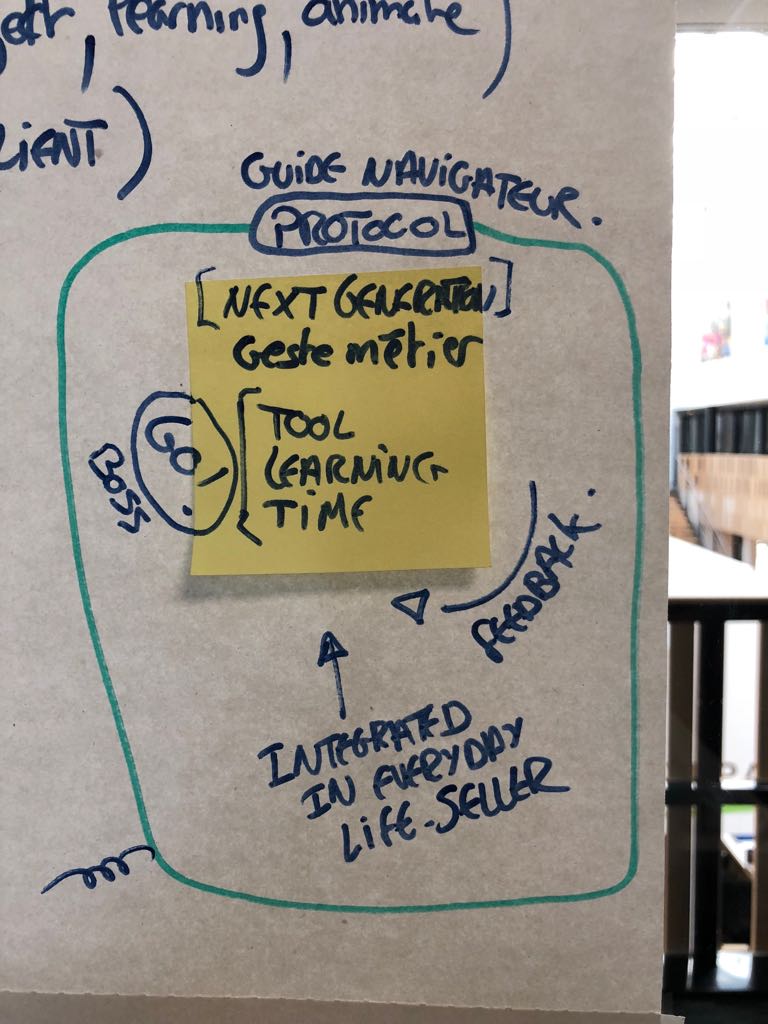 learning, animate)
GUIDE NAVIGATEUR.
PROTOCOL
[NEXT GENERATION]
Geste métier
GO!
BOSS
TOOL
LEARNING
TIME
FEEDBACK.
INTEGRATED
IN EVERYDAY
LIFE-SELLER